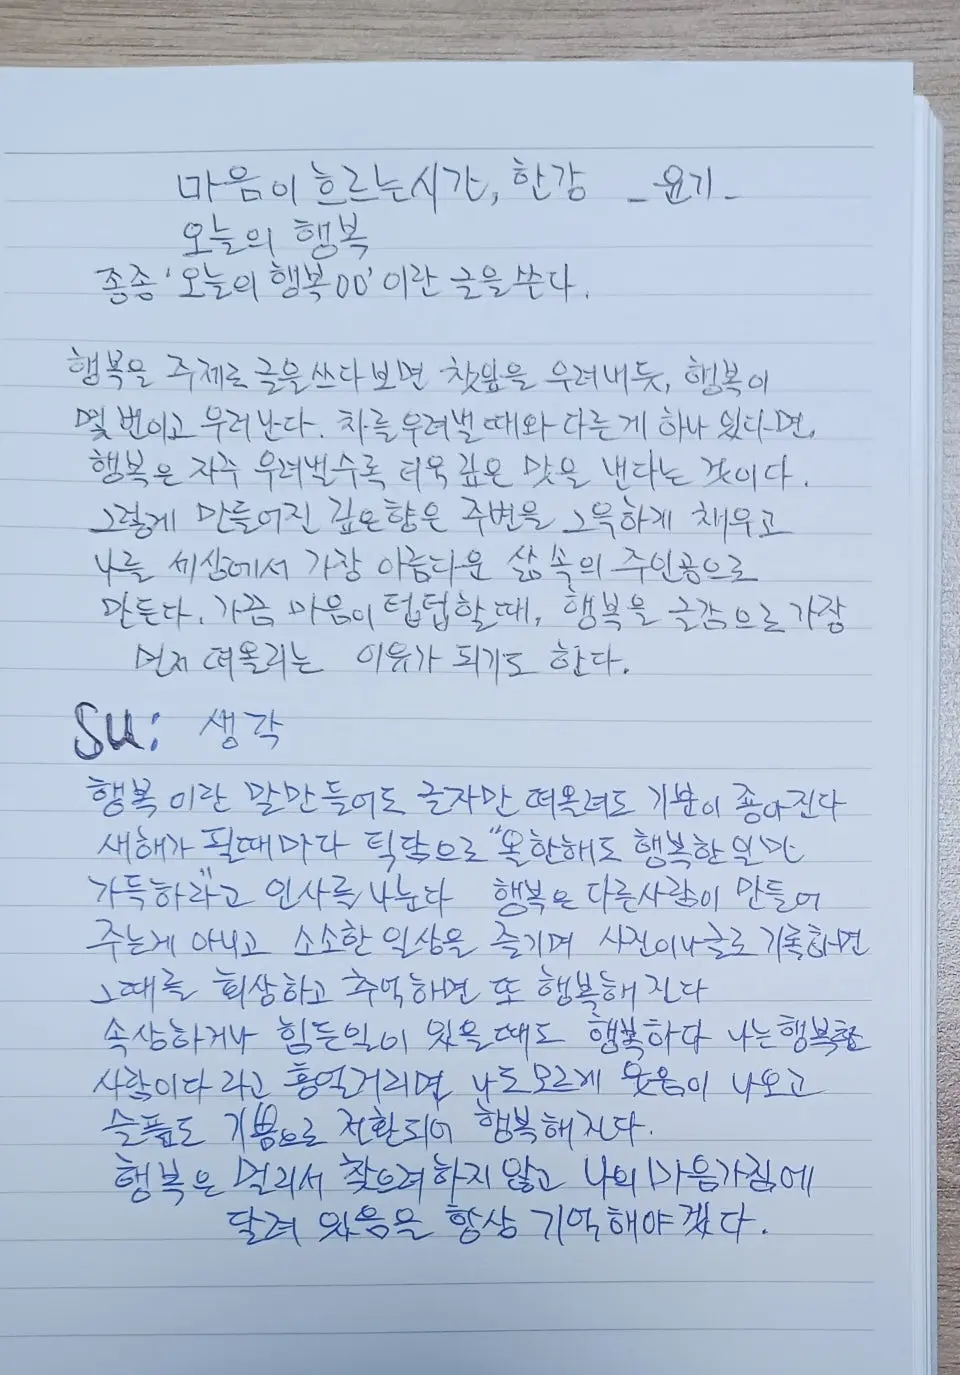 마음이 흐르는시간, 한강 _ 윤기 _
오늘의 행복
종종 '오늘의 행복00'이란 글을 쓴다.
행복을 주제로 글을쓰다보면 찻잎을 우려내듯, 행복이
몇번이고 우러난다. 차를우려낼때와 다른게 하나 있다면,
행복은 자주 우려낼수록 더욱 깊은 맛을 낸다는 것이다.
그렇게 만들어진 깊은향은 주변을 그윽하게 채우고
나를 세상에서 가장 아름다운 삶 속의 주인공으로
만든다. 가끔 마음이 텁텁할때, 행복을 글감으로 가장
먼저 떠올리는 이유가 되기도 한다.
SU: 생각
행복 이란 말만 들어도 글자만 떠올려도 기분이 좋아진다
새해가 될때마다 톡으로 "올한해도 행복한 일만
가득하라"고 인사를 나눈다 행복은 다른사람이 만들어
주는게 아니고 소소한 일상을 즐기며 사진이나글로기록하면
그때를 회상하고 추억하면 또 행복해 진다
속상하거나 힘든일이 있을때도 행복하다 나는행복한
사람이다 라고 흥얼거리면 나도모르게 웃음이 나오고
슬픔도 기쁨으로 전환되어 행복해진다.
행복은 멀리서 찾으려하지 않고 나의 마음가짐에
달려 있음을 항상 기억해야겠다.